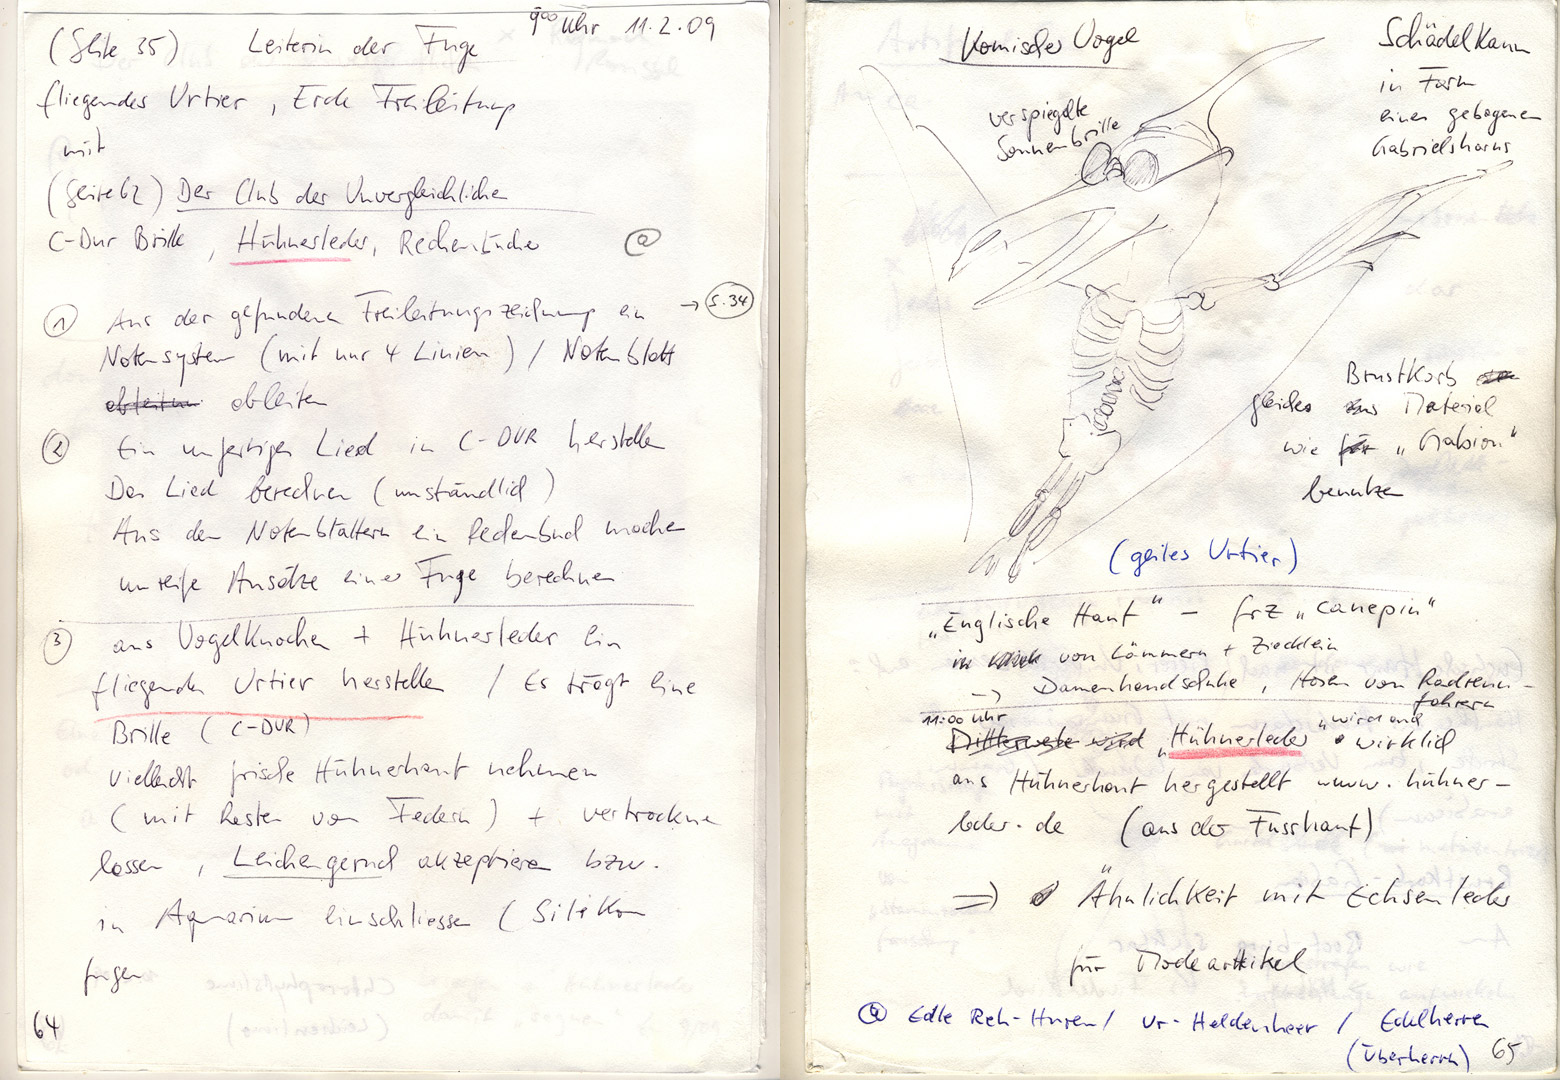 9⁰⁰ Uhr 11.2.09
(Seite 35) Leiterin der Fuge
fliegendes Urtier, Erde Freileitung
mit
(Seite 62) Der Club der Unvergleichliche
C-Dur Brille, Hühnerleder, Rechenküche
@
① Aus der gefundenen Freileitungszeichnung ein → S.34
Notensystem (mit nur 4 Linien) / Notenblatt
ableiten ableiten
② Ein unfertiges Lied in C-DUR herstellen
Das Lied berechnen (umständlich)
Aus den Notenblättern ein Rechenbuch machen
unreife Ansätze einer Fuge berechnen
③ aus Vogelknochen + Hühnerleder ein
fliegendes Urtier herstellen / Es trägt eine
Brille (C-DUR)
vielleicht frische Hühnerhaut nehmen
(mit Resten von Federn) + vertrocknen
lassen, Leichengeruch akzeptieren bzw.
in Aquarium einschliessen (Silikon
fugen
64
Komischer Vogel
verspiegelte
Sonnenbrille
Schädelkamm
in Form
eines gebogenen
Gabrielshorns
Brustkorb
gleiches Material
wie für „Gabion"
benutzen
(geiles Urtier)
„Englische Haut" – frz „canepin"
von Lämmern + Zicklein
→ Damenhandschuhe, Hosen von Radrenn-
fahrern
11:00 Uhr
Mittlerweile wird „Hühnerleder" wird auch wirklich
aus Hühnerhaut hergestellt www.hühner-
leder.de (aus der Fusshaut)
⇒ Ähnlichkeit mit Echsenleder
für Modeartikel
@ Edle Reh-Huren / Ur-Heldenheer / Edelherren
(Überherrn)
65